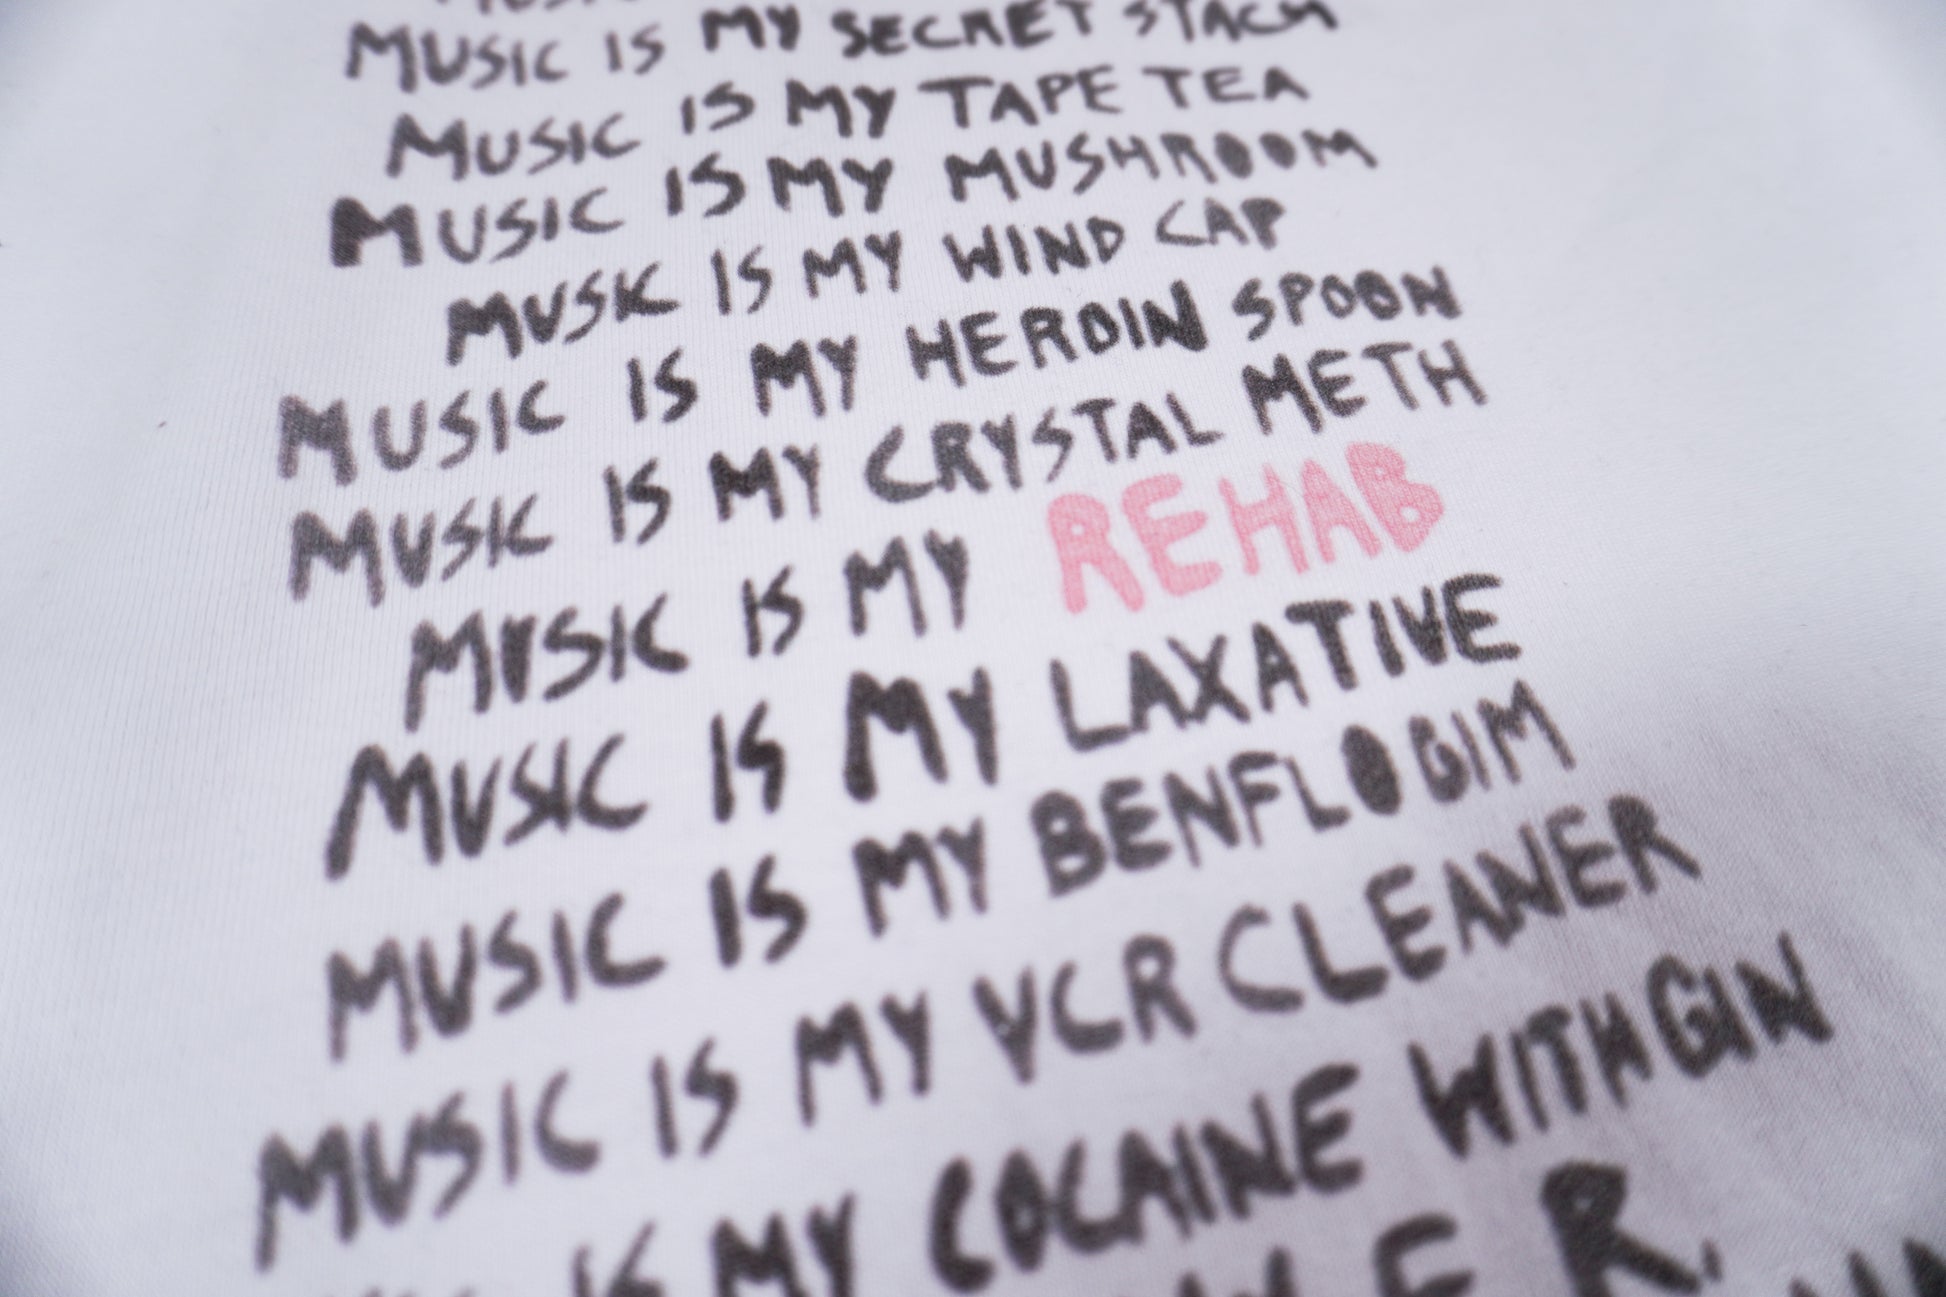 MUSIC IS MY SECRET STACH
MUSIC IS MY TAPE TEA
MUSIC IS MY MUSHROOM
MUSIC IS MY WIND CAP
MUSIC IS MY HEROIN SPOON
MUSIC IS MY CRYSTAL METH
MUSIC IS MY REHAB
MUSIC IS MY LAXATIVE
MUSIC IS MY BENFLOGIM
MUSIC IS MY VCR CLEANER
IS MY COCAINE WITH GIN